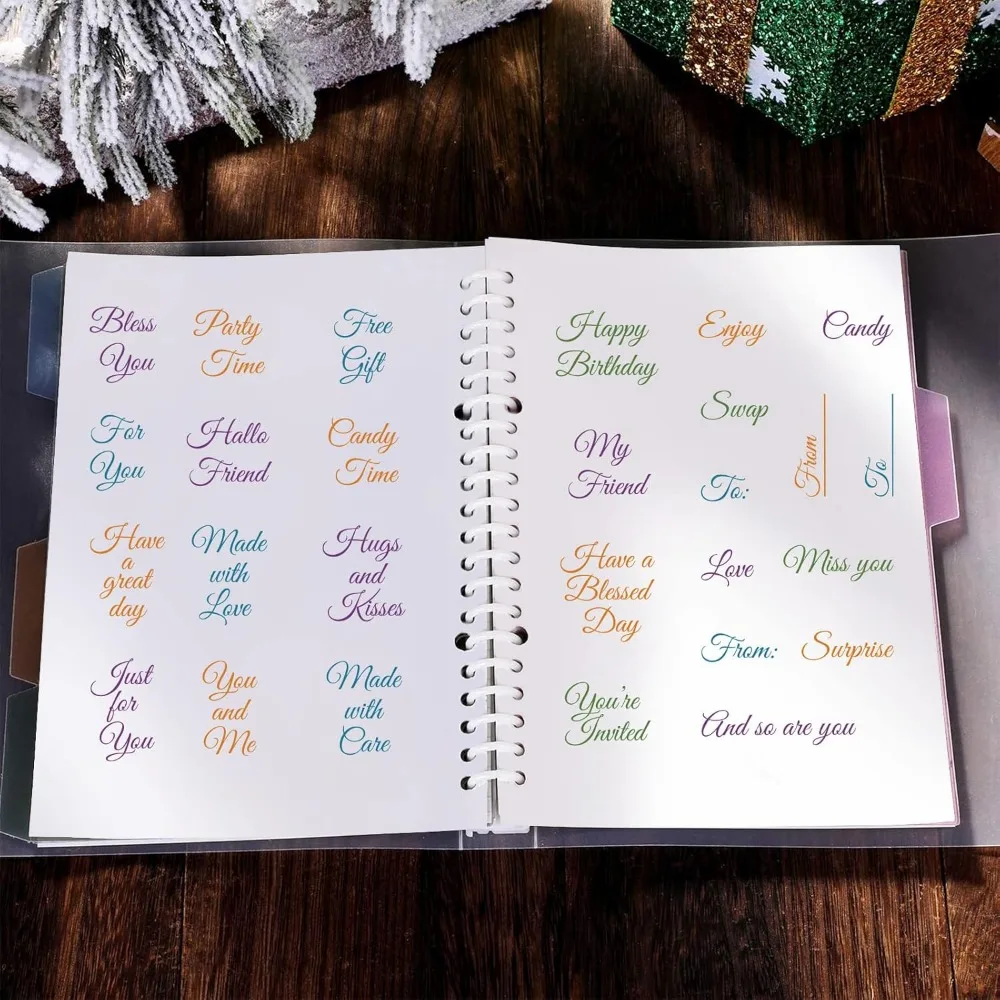 Bless
You
Party
Time
Free
Gift
For
You
Hallo
Friend
Candy
Time
Have
a
great
day
Made
with
Love
Hugs
and
Kisses
Just
for
You
You
and
Me
Made
with
Care
Happy
Birthday
Enjoy
Candy
My
Friend
Swap
To:
From
To
Have a
Blessed
Day
Love
Miss you
From:
Surprise
You're
Invited
And so are you